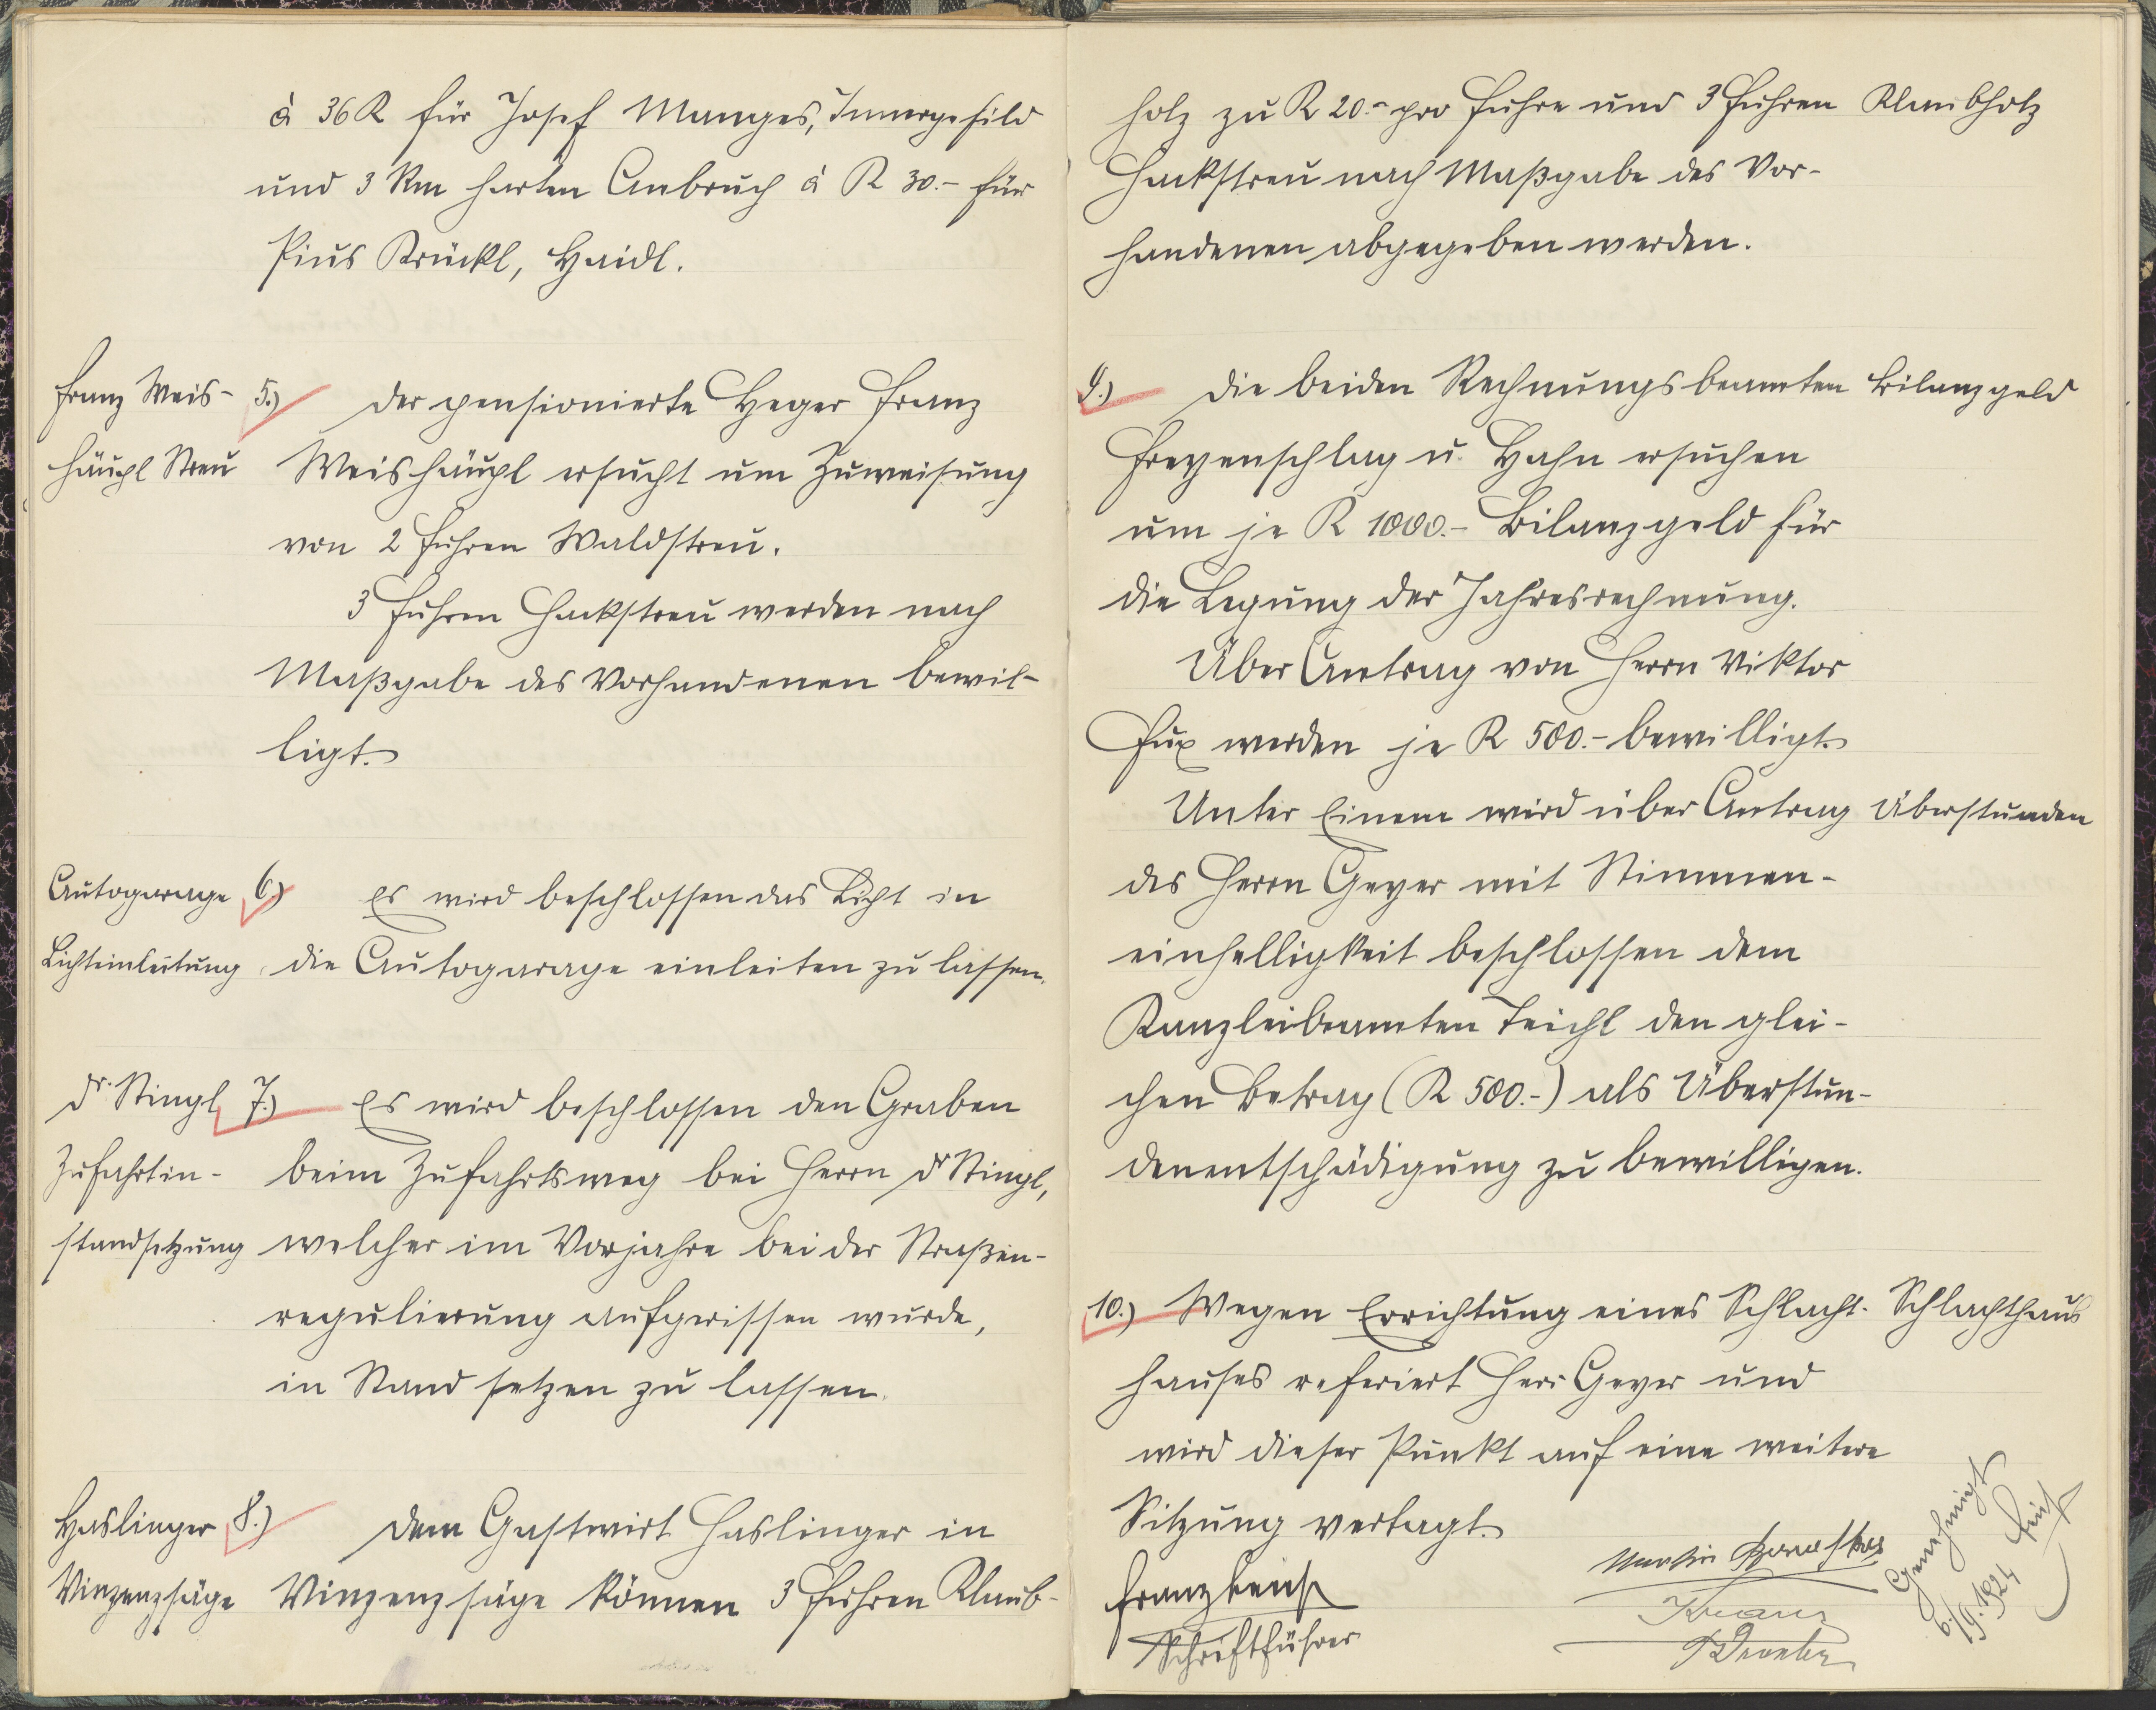 à 36 K für Josef Manges, Innergefild
und 3 Rm harten Anbruch à K 30.- für
Pius Krückl, Haidl.
Franz Weis-
häupl Streu
5.) Der pensionierte Heger Franz
Weishäupl ersucht um Zuweisung
von 2 Fuhren Waldstreu.
3 Fuhren Hackstreu werden nach
Maßgabe des Vorhandenen bewil-
ligt.
Autogarage
Lichteinleitung
6.) Es wird beschlossen das Licht in
die Autogarage einleiten zu lassen.
Dr. Stingl
Zufahrtin-
standsetzung
7.) Es wird beschlossen den Graben
beim Zufahrtsweg bei Herrn Dr Stingl,
welcher im Vorjahre bei der Straßen-
regulierung aufgerissen wurde,
in Stand setzen zu lassen.
Haslinger
Vinzenzsäge
8.) Dem Gastwirt Haslinger in
Vinzenzsäge können 3 Fuhren Klaub-
holz zu K 20.- pro Fuhre und 3 Fuhren
Hackstreu nach Maßgabe des Vor-
handenen abgegeben werden.
Klaubholz
9.) Die beiden Rechnungsbeamten
Freyenschlag u. Hahn ersuchen
um je K 1000.- Bilanzgeld für
die Legung der Jahresrechnung.
Bilanzgeld
Über Antrag von Herrn Viktor
Fux werden je K 500.- bewilligt.
Unter Einem wird über Antrag
des Herrn Geyer mit Stimmen-
einhelligkeit beschlossen dem
Kanzleibeamten Teichl den glei-
chen Betrag (K 500.-) als Überstun-
denentschädigung zu bewilligen.
Überstunden
10.) Wegen Errichtung eines Schlacht-
hauses referiert Herr Geyer und
wird dieser Punkt auf eine weitere
Sitzung vertagt.
Schlachthaus
Franz
Schriftführer
Martin
Genehmigt
6./9. 1924